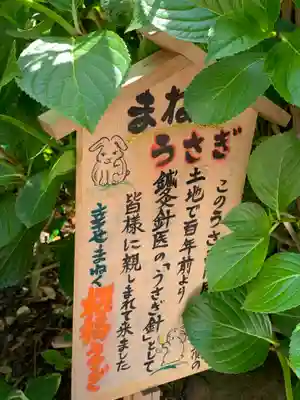 まね
うさぎ
このうさ
土地で百年前より
鍼灸針医の「うさぎ針」として
皆様に親しまれて来ました
幸せまねく